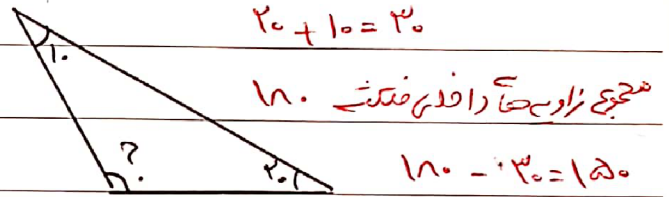 ۲۰ + ۱۰ = ۳۰
۱۰
مجموع زاویه‌های داخلی مثلث ۱۸۰
؟
۲۰
۱۸۰ - ۳۰ = ۱۵۰